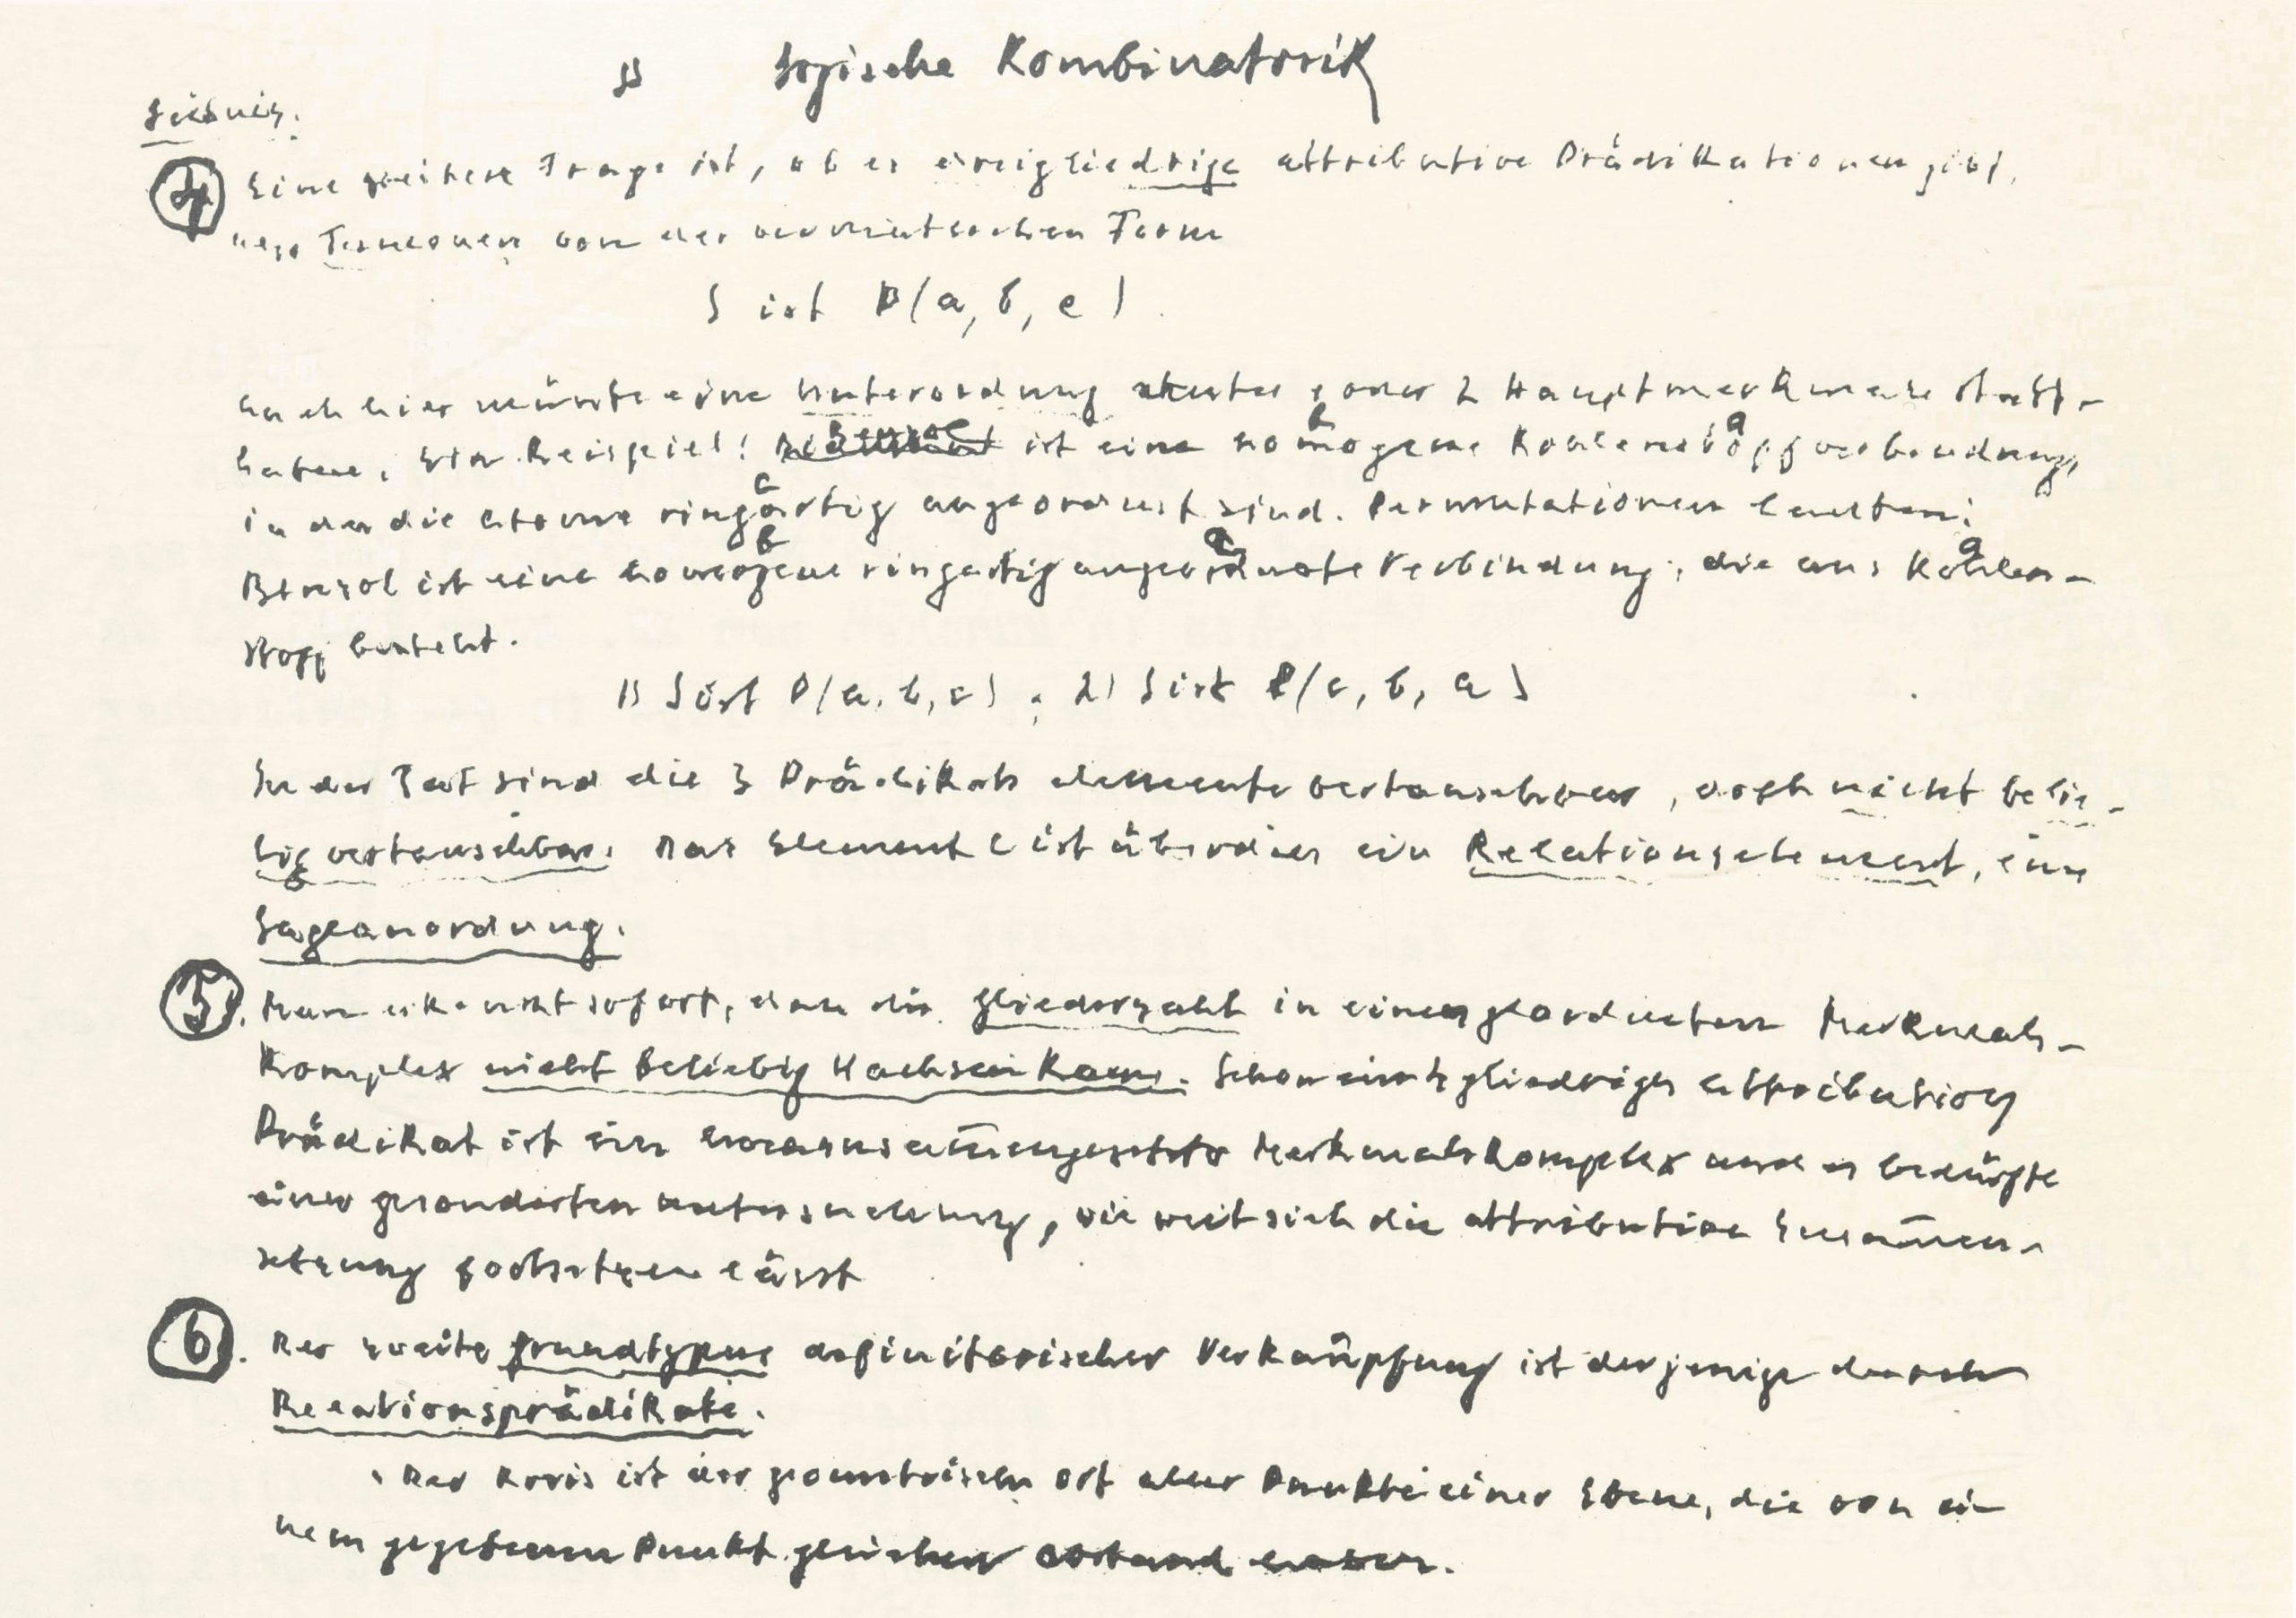 Logische Kombinatorik
Leibniz.
4 Eine weitere Frage ist, ob es dreigliedrige attributive Prädikationen gibt,
von der Form
S ist P(a, b, c)
auch hier müsste eine Unterordnung unter 1 oder 2 Hauptmerkmale statt-
haben. Ein Beispiel: Benzol ist eine homogene Kohlenstoffverbindung,
b a
in der die Atome ringartig angeordnet sind. Permutationen lauten:
c
Benzol ist eine homogene ringartig angeordnete Verbindung, die aus Kohlen-
b c a
stoff besteht.
1) S ist P(a, b, c) ; 2) S ist P(c, b, a)
In der Tat sind die 3 Prädikatselemente vertauschbar, doch nicht belie-
big vertauschbar. Das Element c ist überdies ein Relationselement, eine
Lageanordnung.
5. Man erkennt sofort, dass die Gliederzahl in einem geordneten Merkmals-
komplex nicht beliebig wachsen kann. Schon ein 3gliedriges attributives
Prädikat ist ein zusam̄engesetzter Merkmalskomplex und es bedürfte
einer gesonderten Untersuchung, wie weit sich die attributive Zusam̄en-
setzung fortsetzen lässt
6. Der zweite Grundtypus definitorischer Verknüpfung ist derjenige durch
Relationsprädikate.
Der Kreis ist der geometrische Ort aller Punkte einer Ebene, die von ei-
nem gegebenen Punkt gleichen Abstand haben.